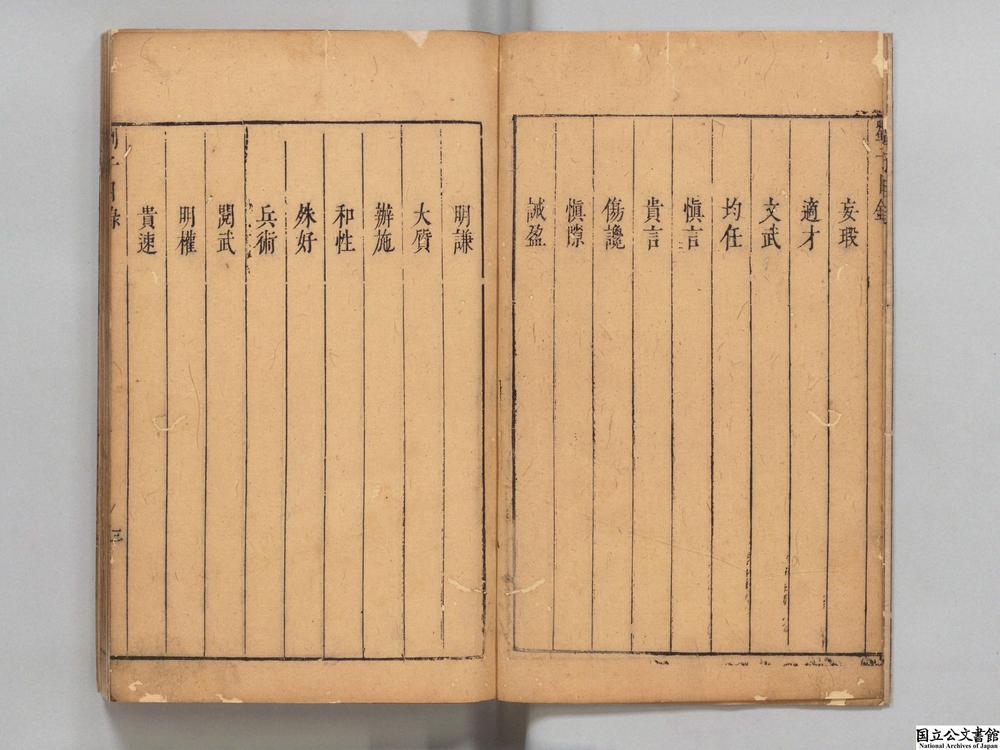 妄瑕
適才
文武
均任
慎言
貴言
傷讒
愼隙
誡盈
明謙
大質
辦施
和性
殊好
兵術
閱武
明權
貴速
三
国立公文書館
National Archives of Japan